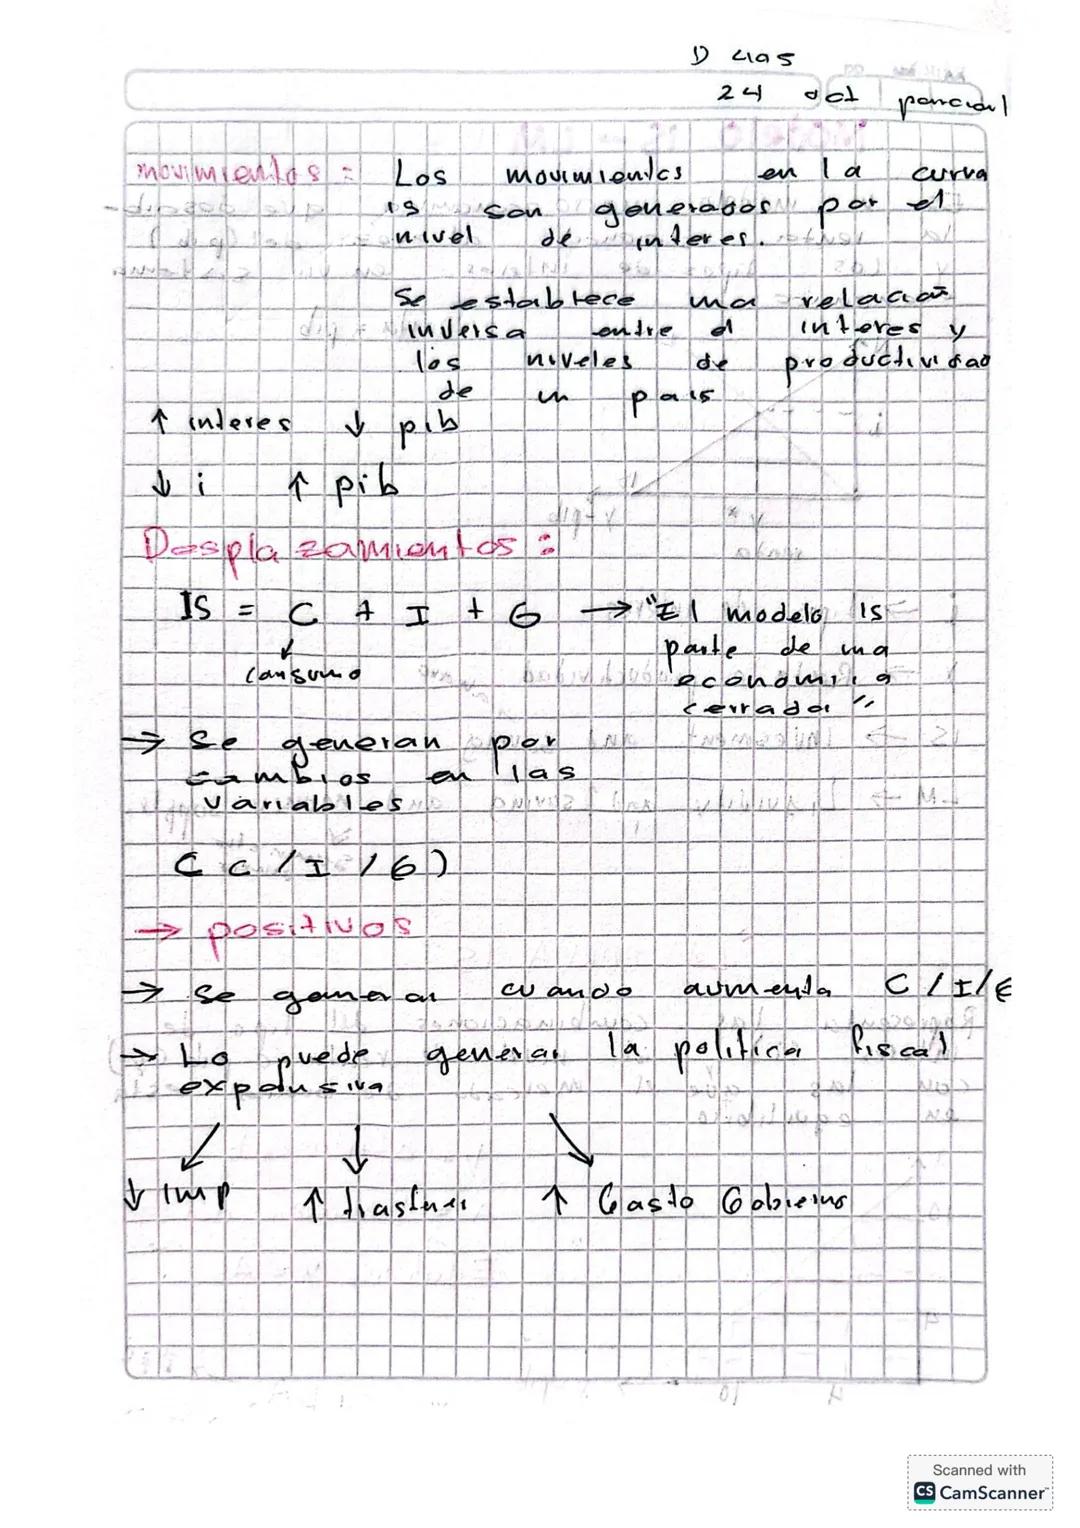 D uas
24 oct parcial
movimientos = Los movimientos en la curva
is son generados por el
nivel de interes.
Se establece una relacion
inversa entre el interes y
los niveles de productividad
de un pais
↑ interes ↓ pib
↓ i ↑ pib
Desplazamientos :
IS = C + I + G → "El modelo IS
parte de una
↓
consumo
economia
cerrada"
→ Se generan por
cambios en las
variables
C C / I / G)
→ positivos
→ Se generan cuando aumenta C / I / G
→ Lo puede generar la politica fiscal
expansiva
↓ Imp ↑ trasfer ↑ Gasto Gobierno
Scanned with
CS CamScanner